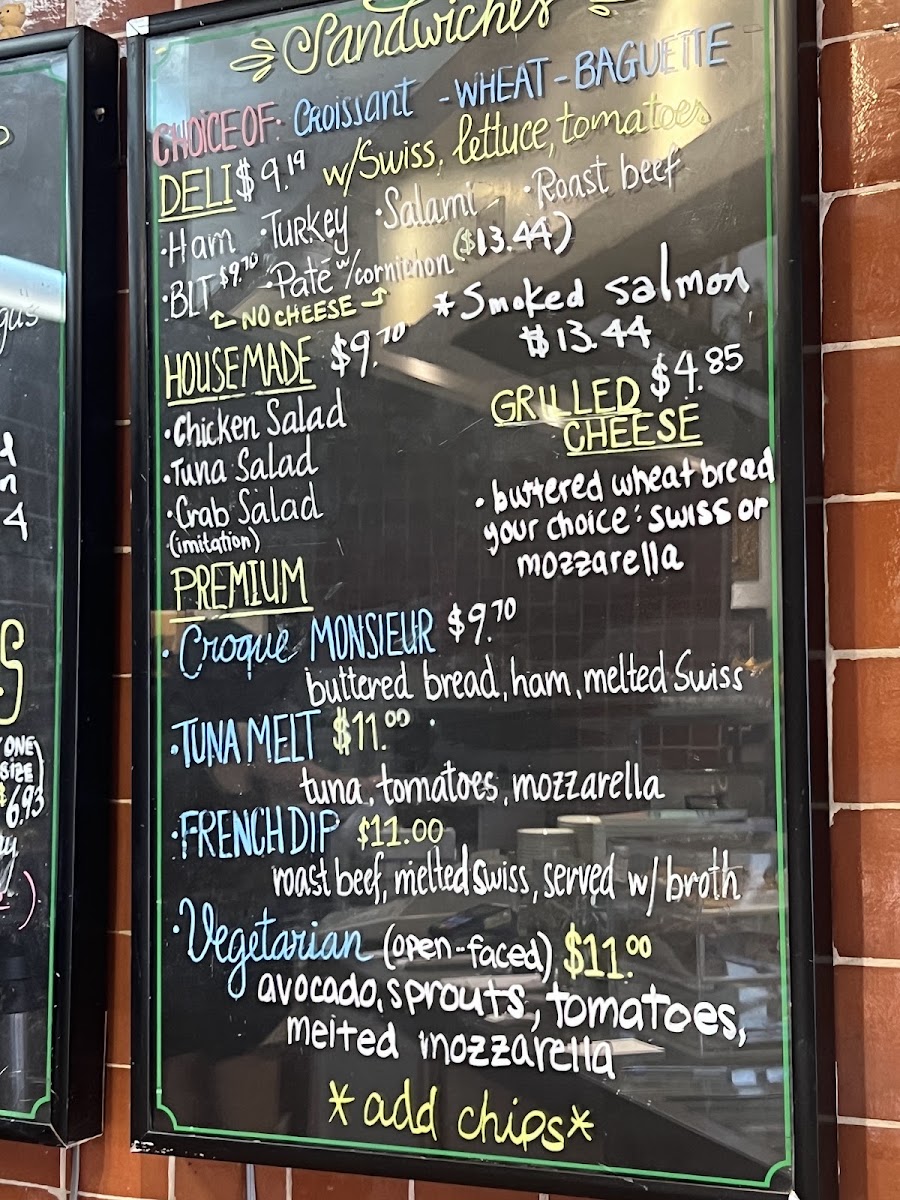 Sandwiches
CHOICE OF: CROissANT - WHEAT - BAGUETTE
DELI $9.19 w/Swiss, lettuce, tomatoes
·Ham ·TURKEY ·Salami ·Roast beef
·BLT $9.70 ·Patē w/cornichon ($13.44)
NO CHEESE
*Smoked salmon
$13.44
HOUSEMADE $9.70
·Chicken Salad
·Tuna Salad
·Crab Salad
(imitation)
GRILLED $4.85
CHEESE
·buttered wheat bread
your choice: swiss or
mozzarella
PREMIUM
·Croque MONSIEUR $9.70
buttered bread, ham, melted Swiss
·TUNA MELT $11.00
tuna, tomatoes, mozzarella
·FRENCH DIP $11.00
roast beef, melted swiss, served w/ broth
·Vegetarian (open-faced) $11.00
avocado, sprouts, tomatoes,
melted mozzarella
*add chips*
ONE
SIZE
$6.93